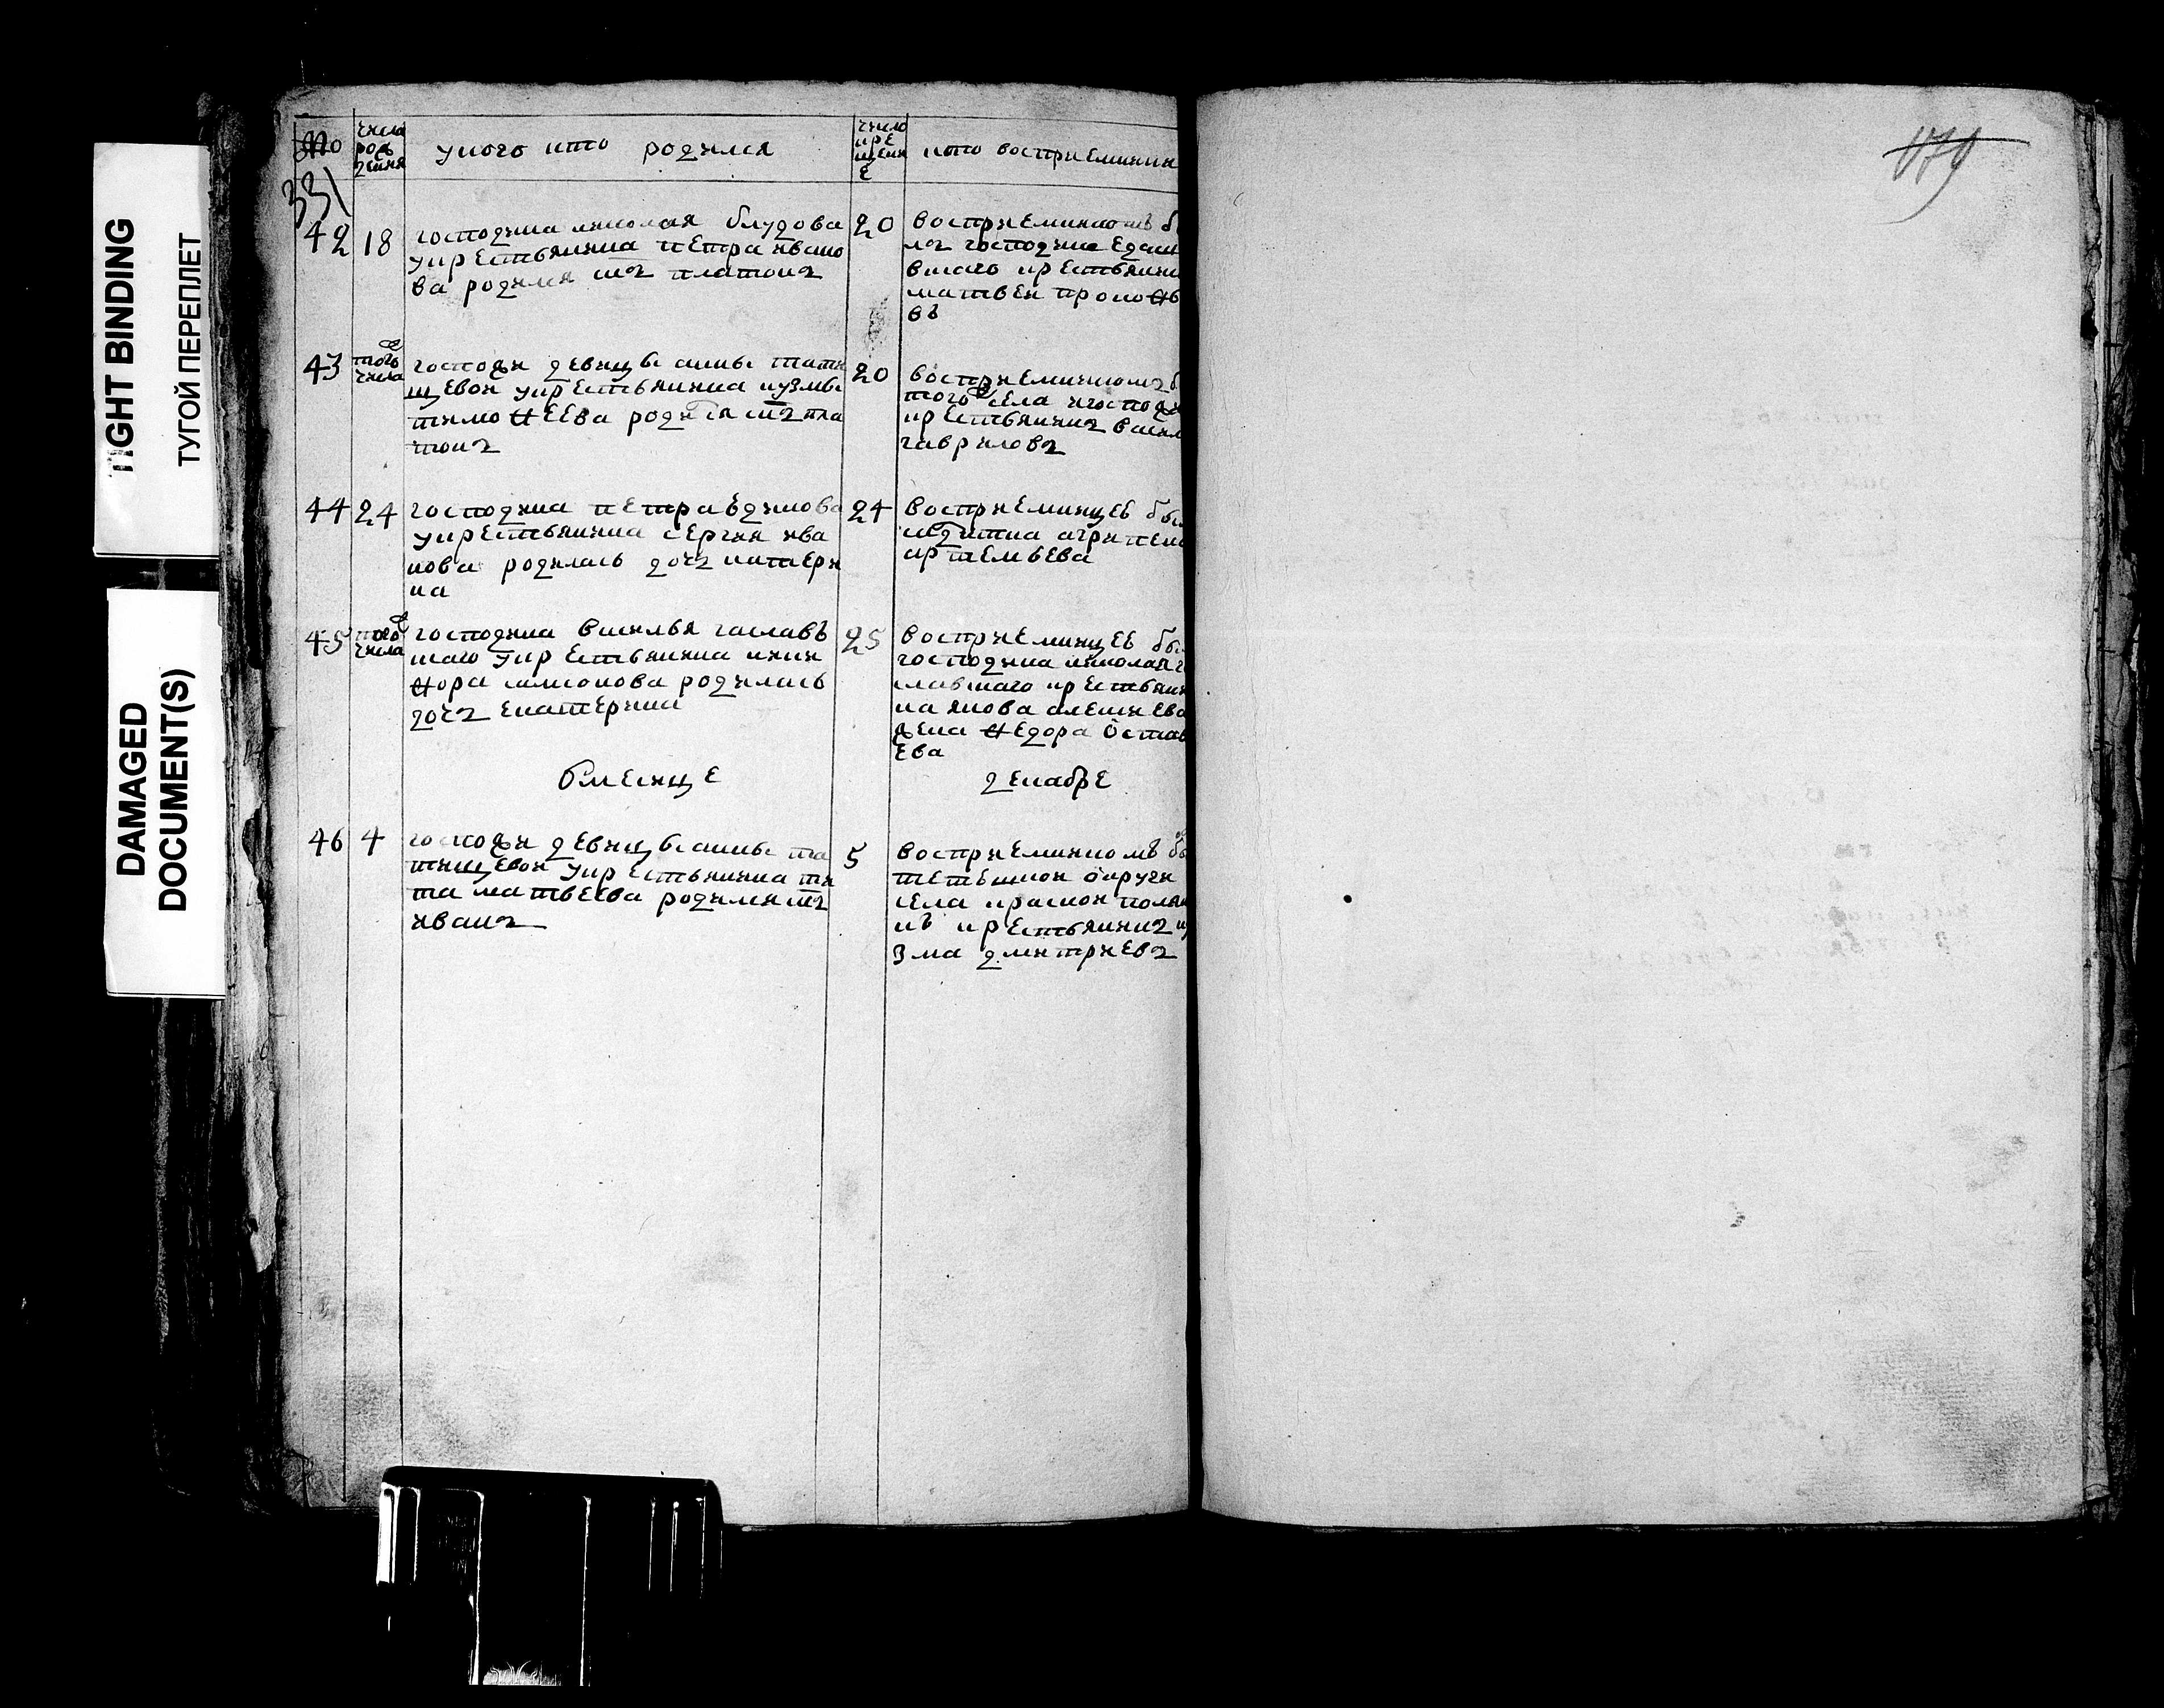 TIGHT BINDING
ТУГОЙ ПЕРЕПЛЕТ
DAMAGED
DOCUMENT(S)
числа
рож
дения
у кого кто родился
число
кре
щени
е
кто восприемники
331
42 18
господина николая блудова
укрестьянина петра ивано
ва родился сынъ платонъ
20
восприемникомъ б
лъ господина
вшаго крестьянинъ
матвеи прокофь
въ
43
того
числа
госпожи девицы анны тати
щевои укрестьянина кузмы
тимофеева родился сынъ пла
тонъ
20
восприемникомъ б
того села игоспож
крестьянинъ васил
гавриловъ
44 24
господина петра едилова
укрестьянина сергия ива
нова родилась дочъ катери
на
24
восприемницеѣ бы
агрипена
артемьева
45
того
числа
господина василья заславъ
шаго укрестьянина ники
фора самсонова родилась
дочъ екатерина
25
восприемницеѣ бы
господина николая
славшаго крестьяни
на якова алексиева
жена федора оста
ева
вмесице декабре
46 4
госпожи девицы анны та
тищевои укрестьянина ти
та матвеева родился сынъ
иванъ
5
восприемникомъ бы
тетюшкои округи
села краснои поля
нъ крестьянинъ ку
зма дмитриевъ